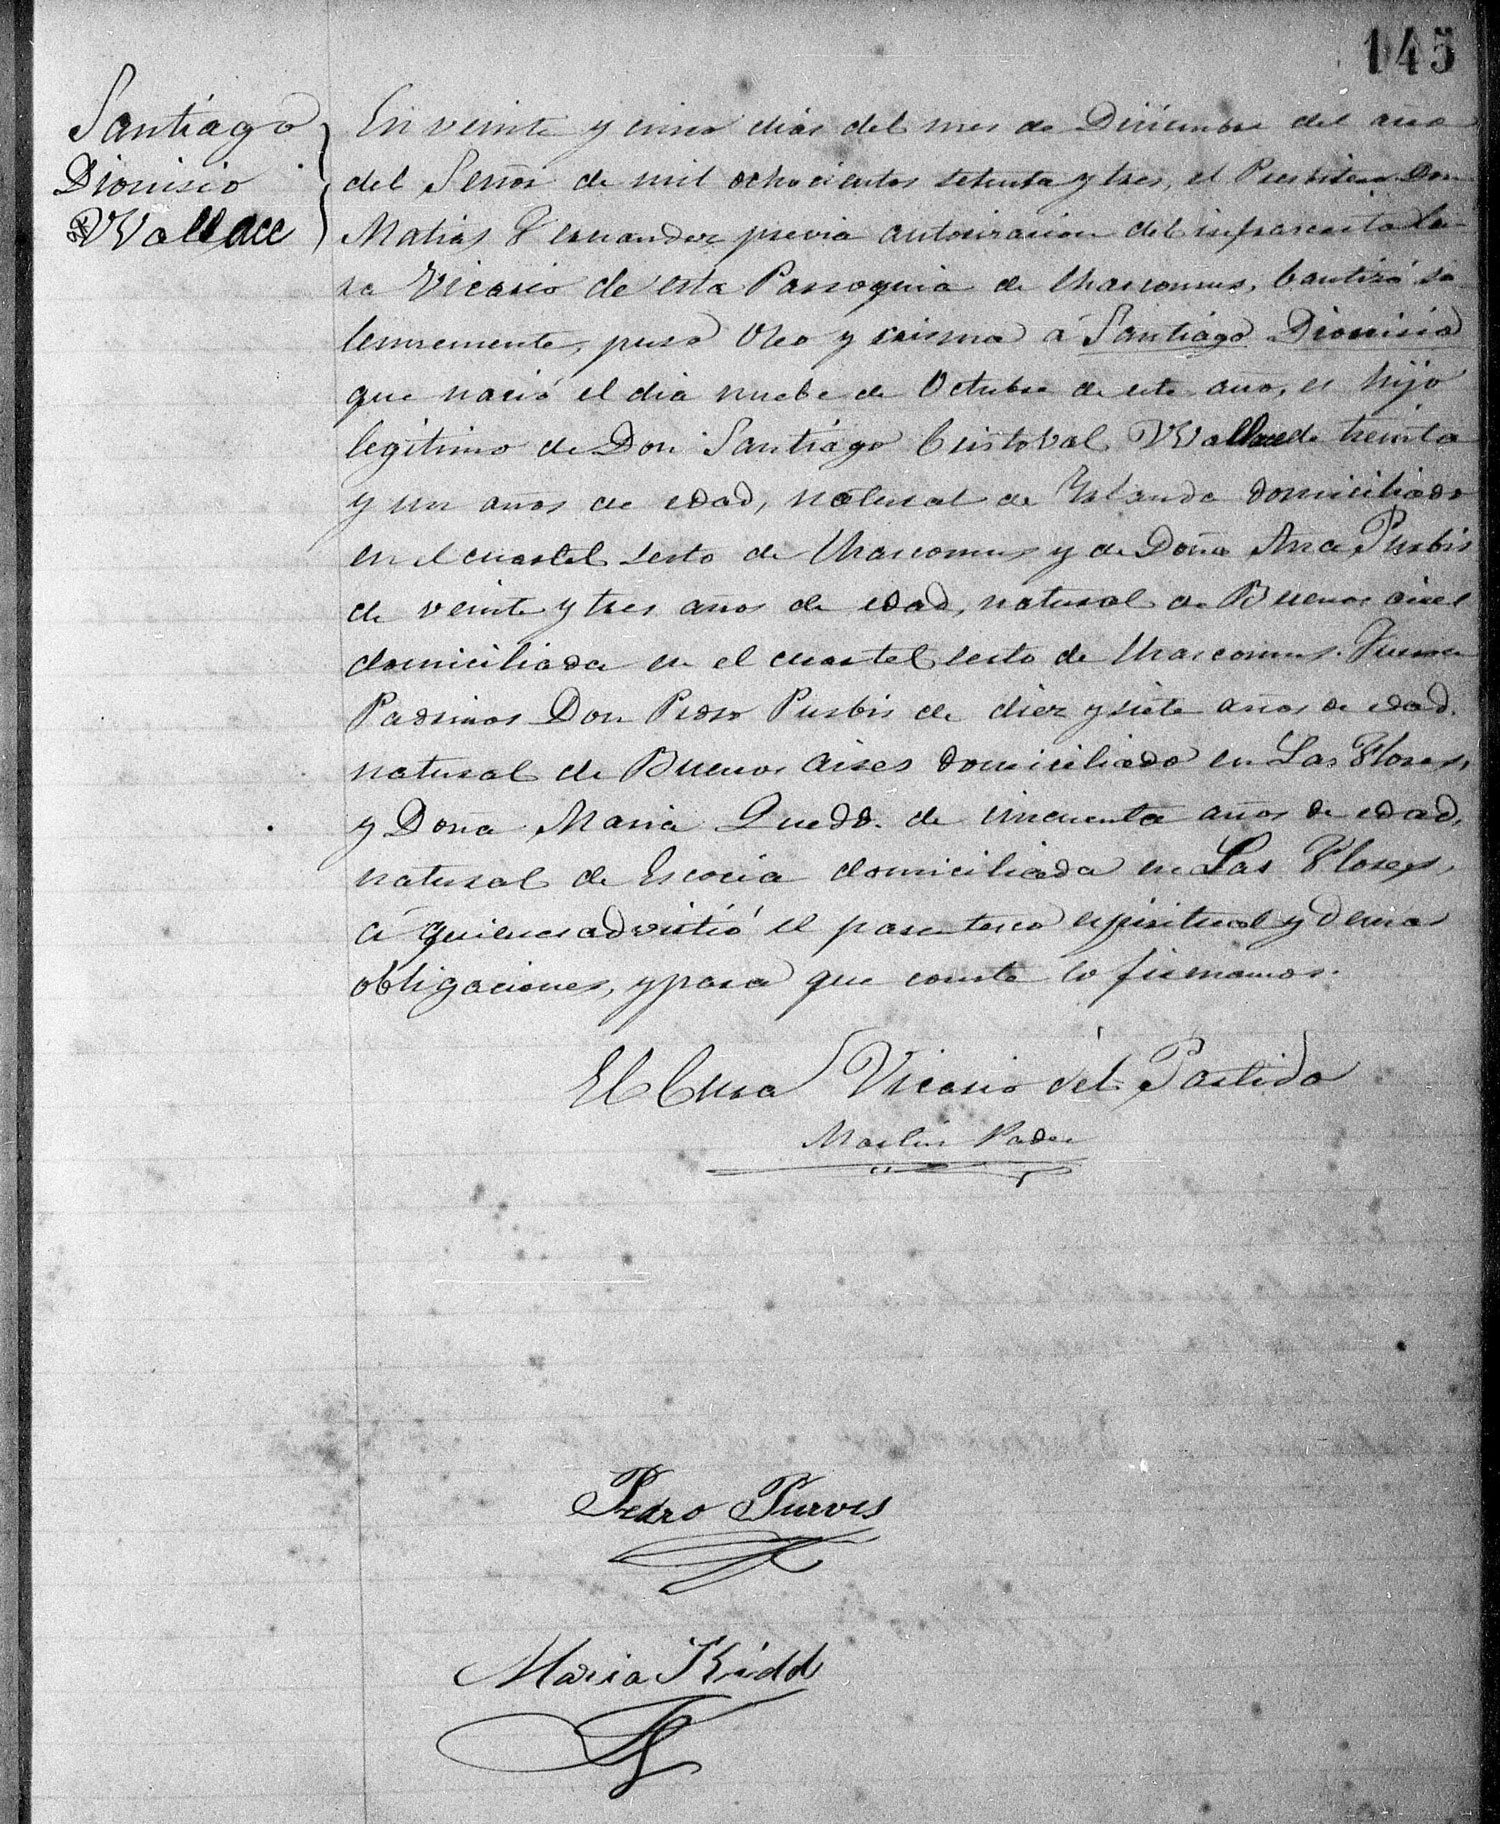 145
Santiago
Dionisio
Wallace
En veinte y cinco dias del mes de Diciembre del año
del Señor de mil ochocientos setenta y tres, el Presbitero Don
Matias Fernandez previa autorizacion del infrascrito Cu-
ra Vicario de esta Parroquia de Chascomus, bautizó so-
lemnemente, puso Oleo y crisma a Santiago Dionisio
que nació el dia nuebe de Octubre de este año, es hijo
legitimo de Don Santiago Cristobal Wallace de treinta
y un años de edad, natural de Yrlanda domiciliado
en el cuartel sesto de Chascomus y de Doña Ana Purbis
de veinte y tres años de edad, natural de Buenos aires
domiciliada en el cuartel sesto de Chascomus. Fueron
Padrinos Don Pedro Purbis de diez y siete años de edad.
natural de Buenos Aires domiciliado en Las Flores,
y Doña Maria Quedd. de cincuenta años de edad,
natural de Escocia domiciliada en Las Flores,
á quienes advirtió el parentesco espiritual y demas
obligaciones, y para que conste lo firmamos.
El Cura Vicario del Partido
Martin
Pedro Purves
Maria Kidd